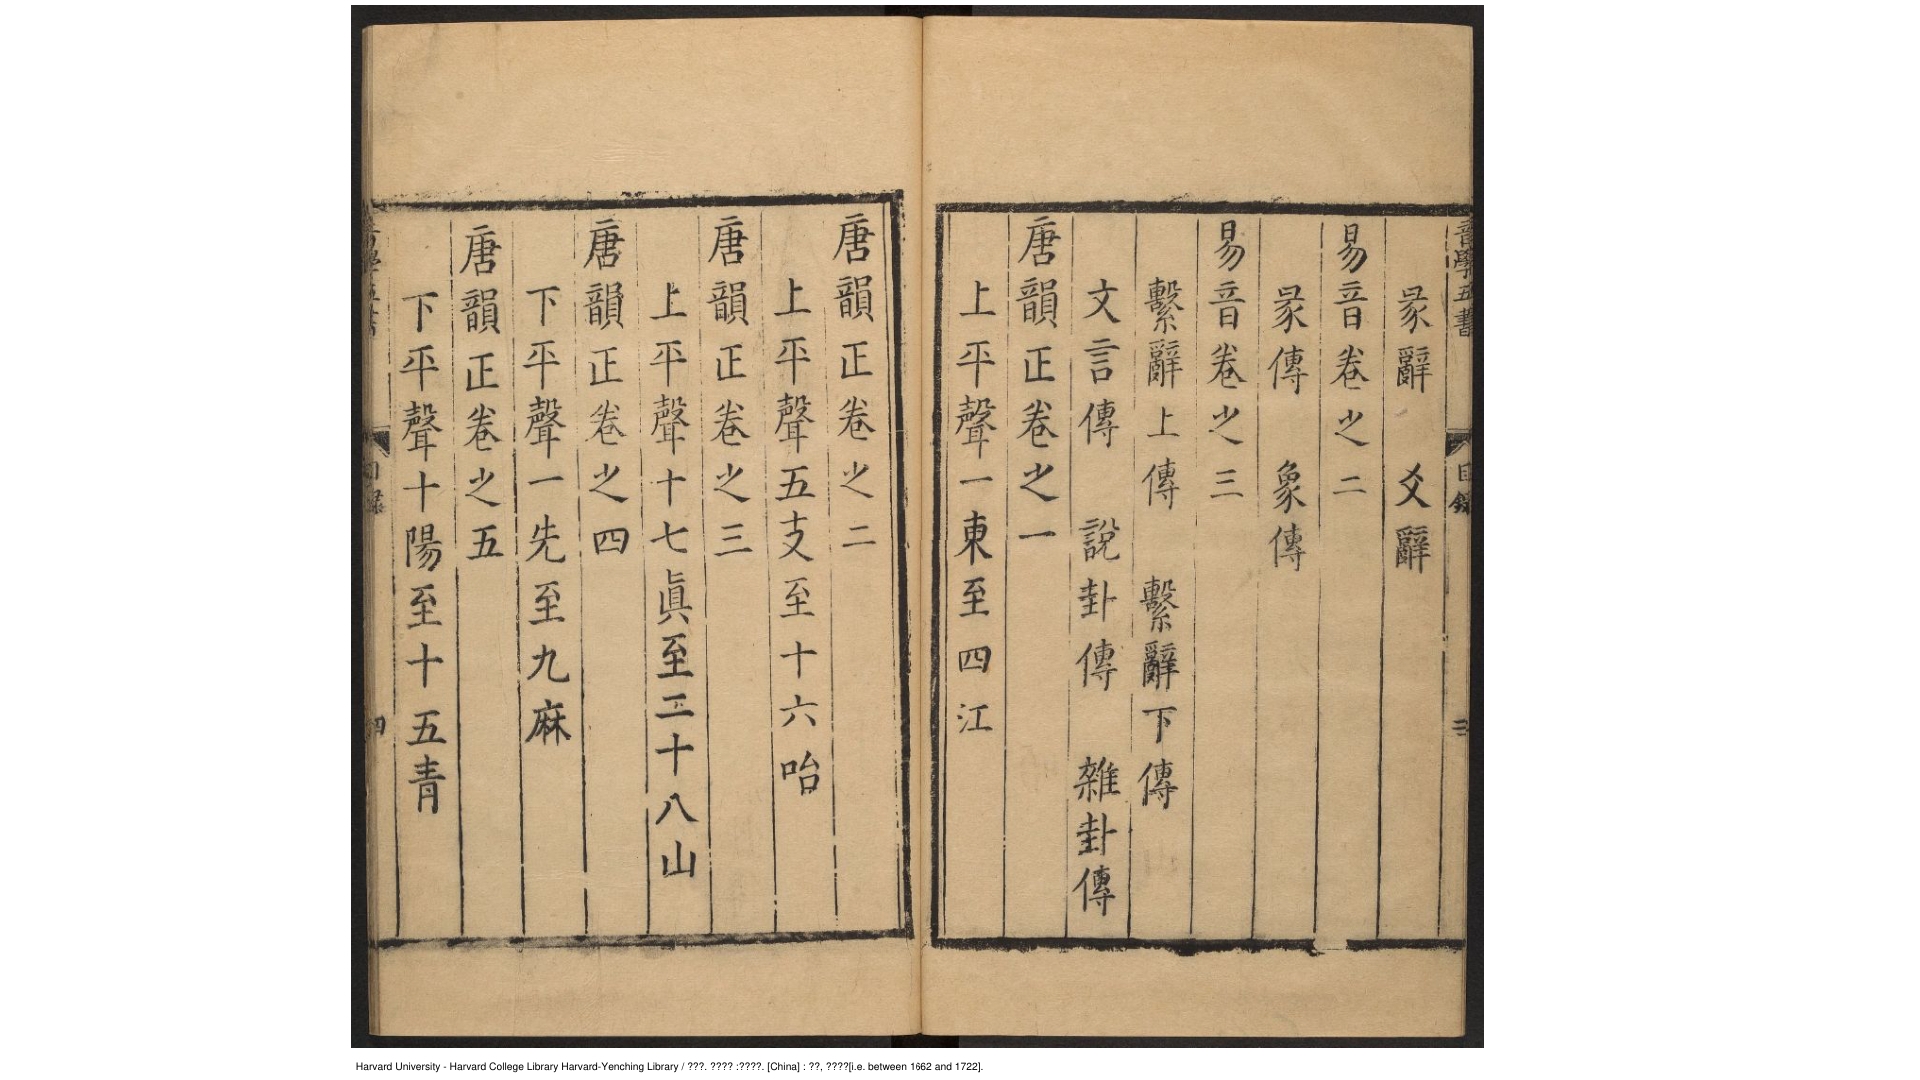 音學五書 目錄 三
彖辭 爻辭
易音卷之二
彖傳 象傳
易音卷之三
繫辭上傳 繫辭下傳
文言傳 說卦傳 雜卦傳
唐韻正卷之一
上平聲一東至四江
唐韻正卷之二
上平聲五支至十六咍
唐韻正卷之三
上平聲十七眞至二十八山
唐韻正卷之四
下平聲一先至九麻
唐韻正卷之五
下平聲十陽至十五青
音學五書 目錄 四
Harvard University - Harvard College Library Harvard-Yenching Library / ???. ???? :????. [China] : ??, ????[i.e. between 1662 and 1722].